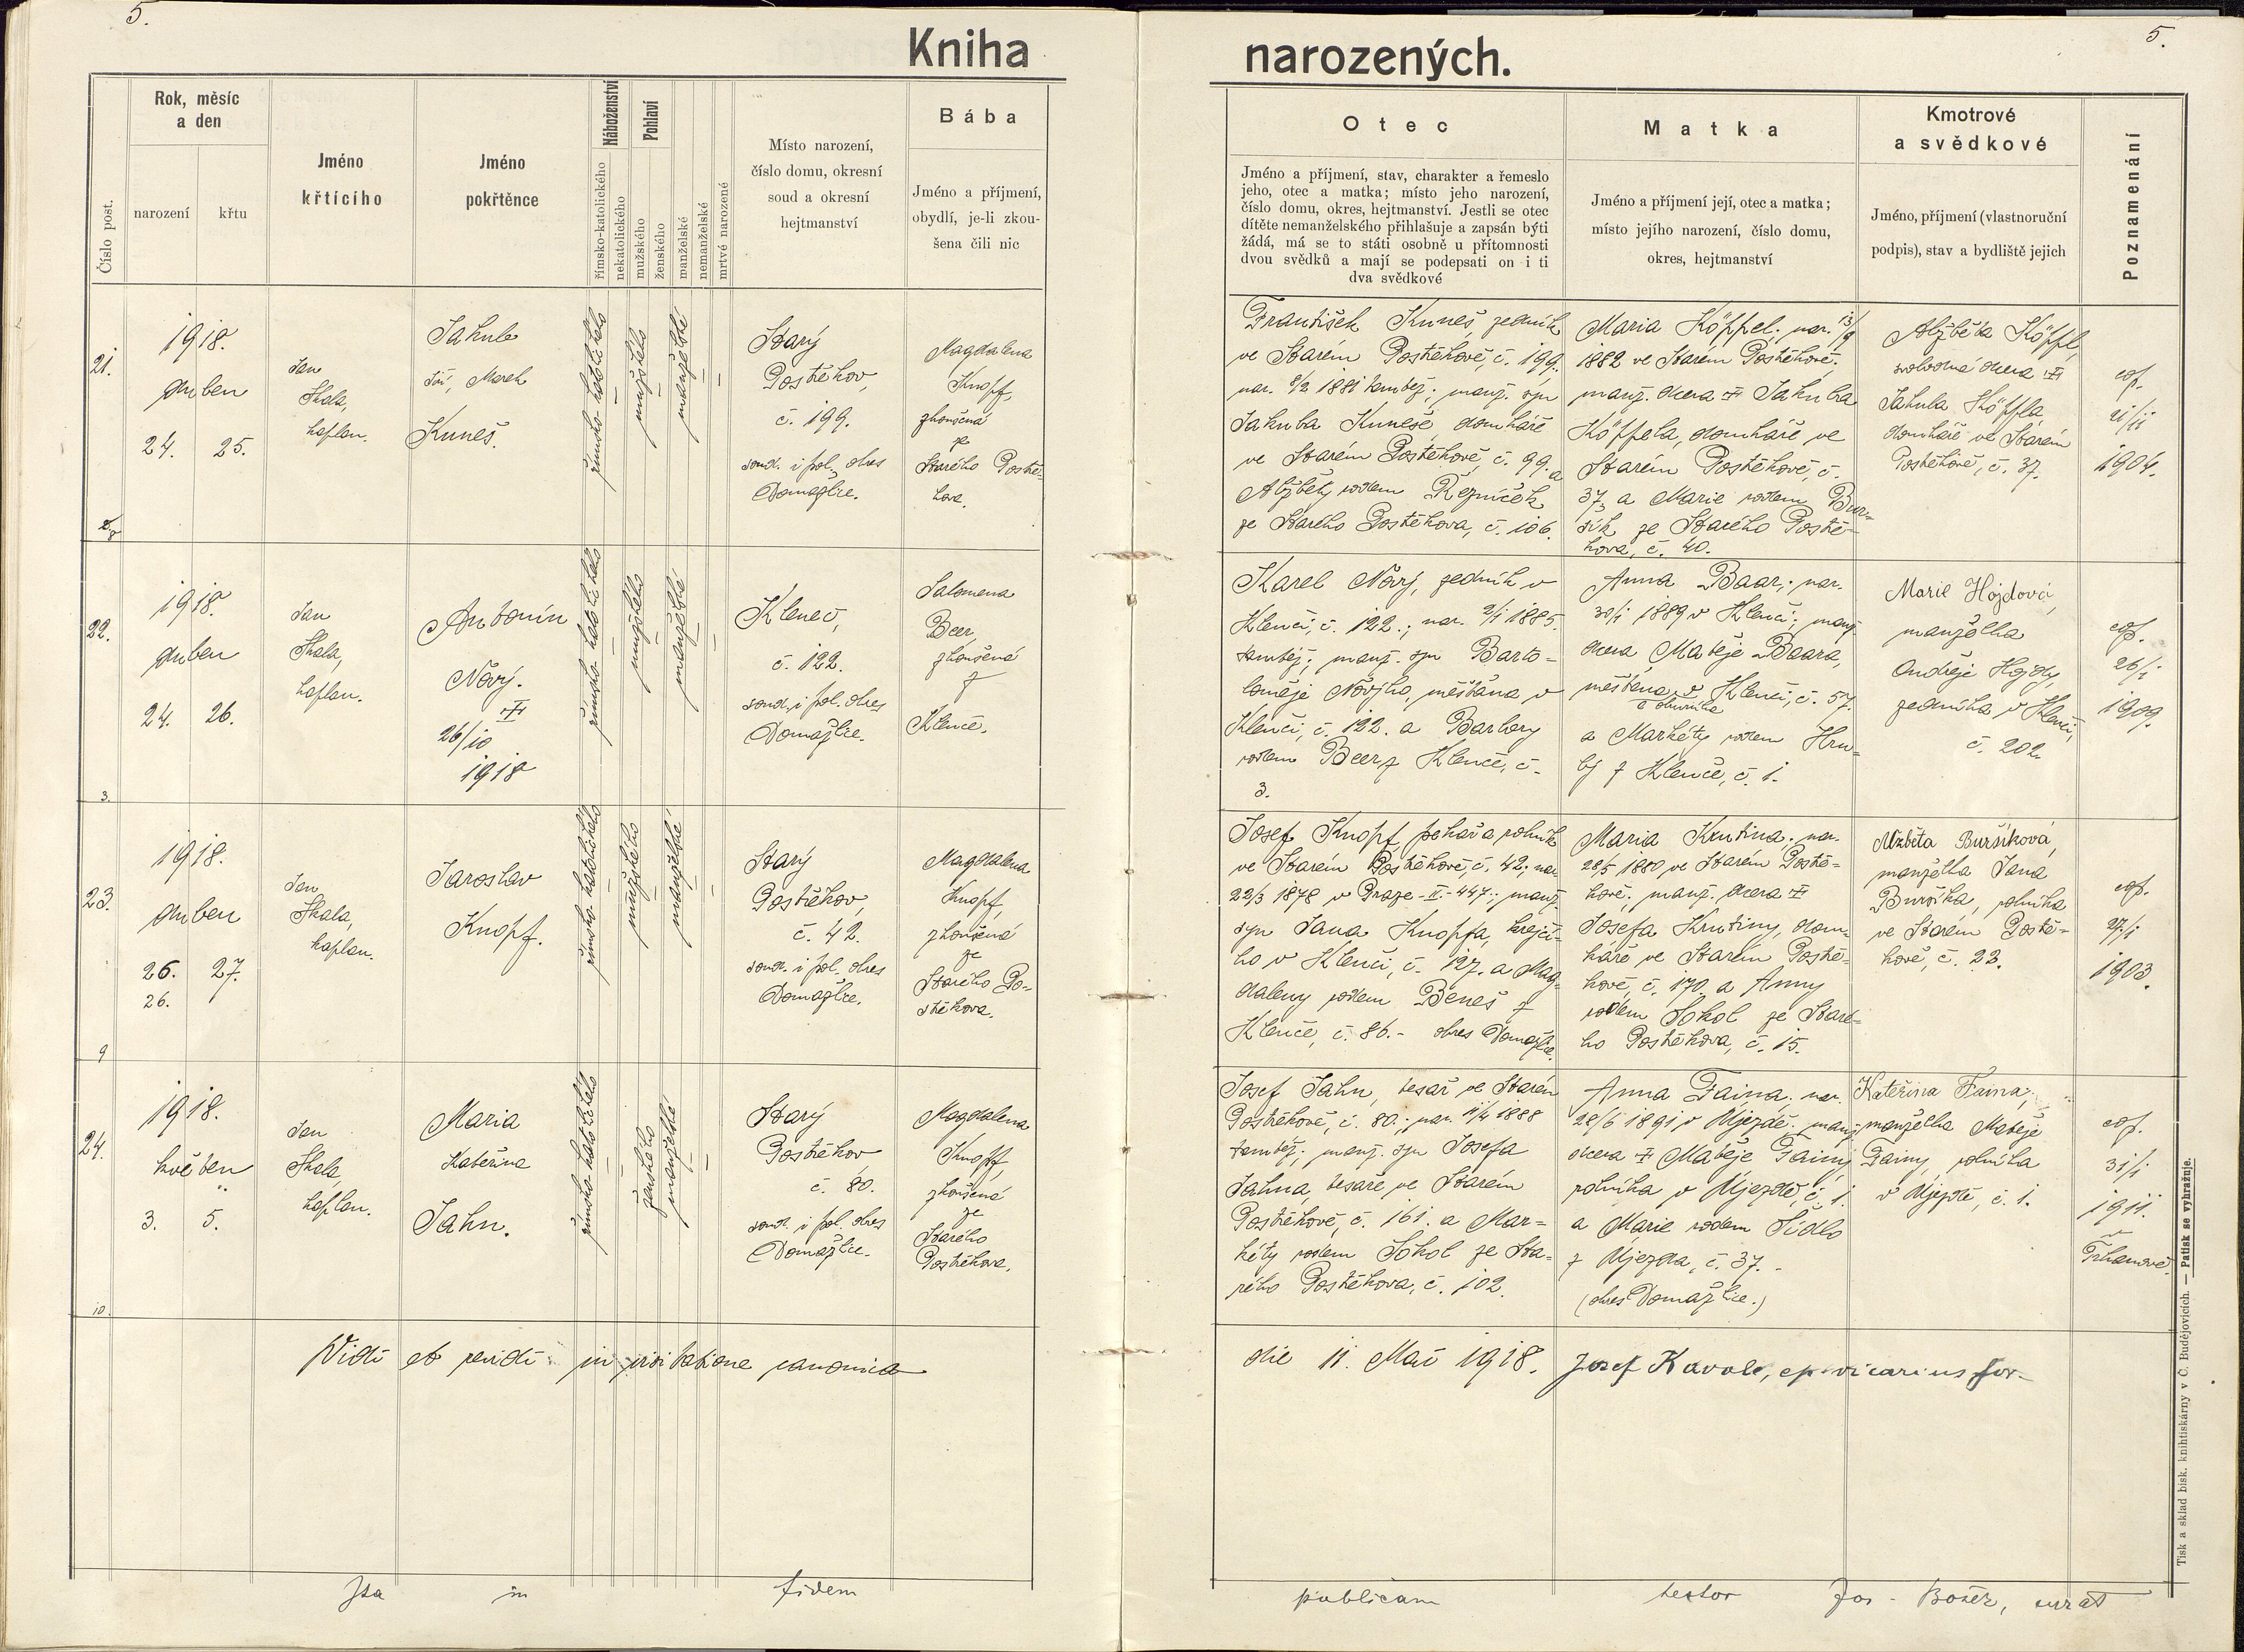 5.
5.
Kniha
narozených.
Číslo post.
Rok, měsíc
a den
narození
křtu
Jméno
křtícího
Jméno
pokřtěnce
Náboženství
římsko-katolického
nekatolického
Pohlaví
mužského
ženského
manželské
nemanželské
mrtvě narozené
Místo narození,
číslo domu, okresní
soud a okresní
hejtmanství
Bába
Jméno a příjmení,
obydlí, je-li zkou-
šena čili nic
Otec
Jméno a příjmení, stav, charakter a řemeslo
jeho, otec a matka; místo jeho narození,
číslo domu, okres, hejtmanství. Jestli se otec
dítěte nemanželského přihlašuje a zapsán býti
žádá, má se to státi osobně u přítomnosti
dvou svědků a mají se podepsati on i ti
dva svědkové
Matka
Jméno a příjmení její, otec a matka;
místo jejího narození, číslo domu,
okres, hejtmanství
Kmotrové
a svědkové
Jméno, příjmení (vlastnoruční
podpis), stav a bydliště jejich
Poznamenání
21.
1918.
duben
24. 25.
Jan
Skala,
kaplan.
Jakub
Jiří, Marek
Kuneš.
římsko-katolického
mužského
manželské
Starý
Postřekov,
č. 199.
soud. i pol. okres
Domažlice.
Magdalena
Knopf,
zkoušená
ze
Starého Postře-
kova.
František Kuneš, zedník
ve Starém Postřekově, č. 199.
nar. 8/2 1881 tamtéž; manž. syn
Jakuba Kuneše, domkáře
ve Starém Postřekově, č. 99. a
Alžběty rodem Řezníček
ze Starého Postřekova, č. 106.
Maria Köppel; nar. 13/9
1882 ve Starém Postřekově;
manž. dcera † Jakuba
Köppela, domkáře ve
Starém Postřekově, č.
37, a Marie rodem Bur-
šík ze Starého Postře-
kova, č. 40.
Alžběta Köppl,
svobodná dcera †
Jakuba Köppla
domkáře ve Starém
Postřekově, č. 37.
cop.
21/11
1904.
22.
1918.
duben
24. 26.
Jan
Skala,
kaplan.
Antonín
Nový.
†
26/10
1918
římsko-katolického
mužského
manželské
Kleneč,
č. 122.
soud. i pol. okres
Domažlice.
Salomena
Beer,
zkoušená
z
Klenče.
Karel Nový, zedník v
Klenčí, č. 122.; nar. 2/1 1885.
tamtéž; manž. syn Barto-
loměje Nového, měšťana v
Klenčí, č. 122. a Barbory
rodem Beer z Klenče, č.
3.
Anna Baar; nar.
30/1 1889 v Klenčí; manž.
dcera Matěje Baara,
měšťana v Klenčí, č. 57.
a Markéty rodem Hru-
bý z Klenče, č. 1.
Marie Hojdová,
manželka
Ondřeje Hojdy
zedníka v Klenčí,
č. 202.
cop.
26/1
1909.
3.
23.
1918.
duben
26. 27.
26.
Jan
Skala,
kaplan.
Jaroslav
Knopf.
římsko-katolického
mužského
manželské
Starý
Postřekov,
č. 42.
soud. i pol. okres
Domažlice.
Magdalena
Knopf,
zkoušená
ze
Starého Po-
střekova.
Josef Knopf pekař a rolník
ve Starém Postřekově, č. 42; nar.
22/3 1878 v Praze-II.-447.; manž.
syn Jana Knopfa, krejčí-
ho v Klenčí, č. 127. a Mag-
daleny rodem Beneš z
Klenče, č. 86.- okres Domažlice.
Maria Krutina; nar.
28/5 1880 ve Starém Postře-
kově; manž. dcera †
Josefa Krutiny, dom-
káře ve Starém Postře-
kově, č. 170. a Anny
rodem Sokol ze Staré-
ho Postřekova, č. 15.
Alžběta Buršíková,
manželka Jana
Buršíka, rolníka
ve Starém Postře-
kově, č. 22.
cop.
27/1
1903.
9
24.
1918.
květen
3. 5.
Jan
Skala,
kaplan.
Maria
Kateřina
Jahn.
římsko-katolického
ženského
manželské
Starý
Postřekov
č. 80.
soud. i pol. okres
Domažlice.
Magdalena
Knopf,
zkoušená
ze
Starého
Postřekova.
Josef Jahn, tesař ve Starém
Postřekově, č. 80.; nar. 1/4 1888
tamtéž; manž. syn Josefa
Jahna, tesaře ve Starém
Postřekově, č. 161. a Mar-
kéty rodem Sokol ze Sta-
rého Postřekova, č. 102.
Anna Faina; nar.
28/6 1891 v Újezdě; manž.
dcera † Matěje Fainy
rolníka v Újezdě, č. 1.
a Marie rodem Sidlo
z Újezda, č. 37.-
(okres Domažlice.)
Kateřina Faina;
manželka Matěje
Fainy, rolníka
v Újezdě, č. 1.
cop.
31/1
1911.
v
Trhanově.
10.
Vidi et revidi in visitatione canonica
die 11. Mai 1918. Josef Kavale, ep. vicarius for-
Ita in fidem publicam testor Jos.
Tisk a sklad bisk. knihtiskárny v Č. Budějovicích. — Patisk se vyhražuje.